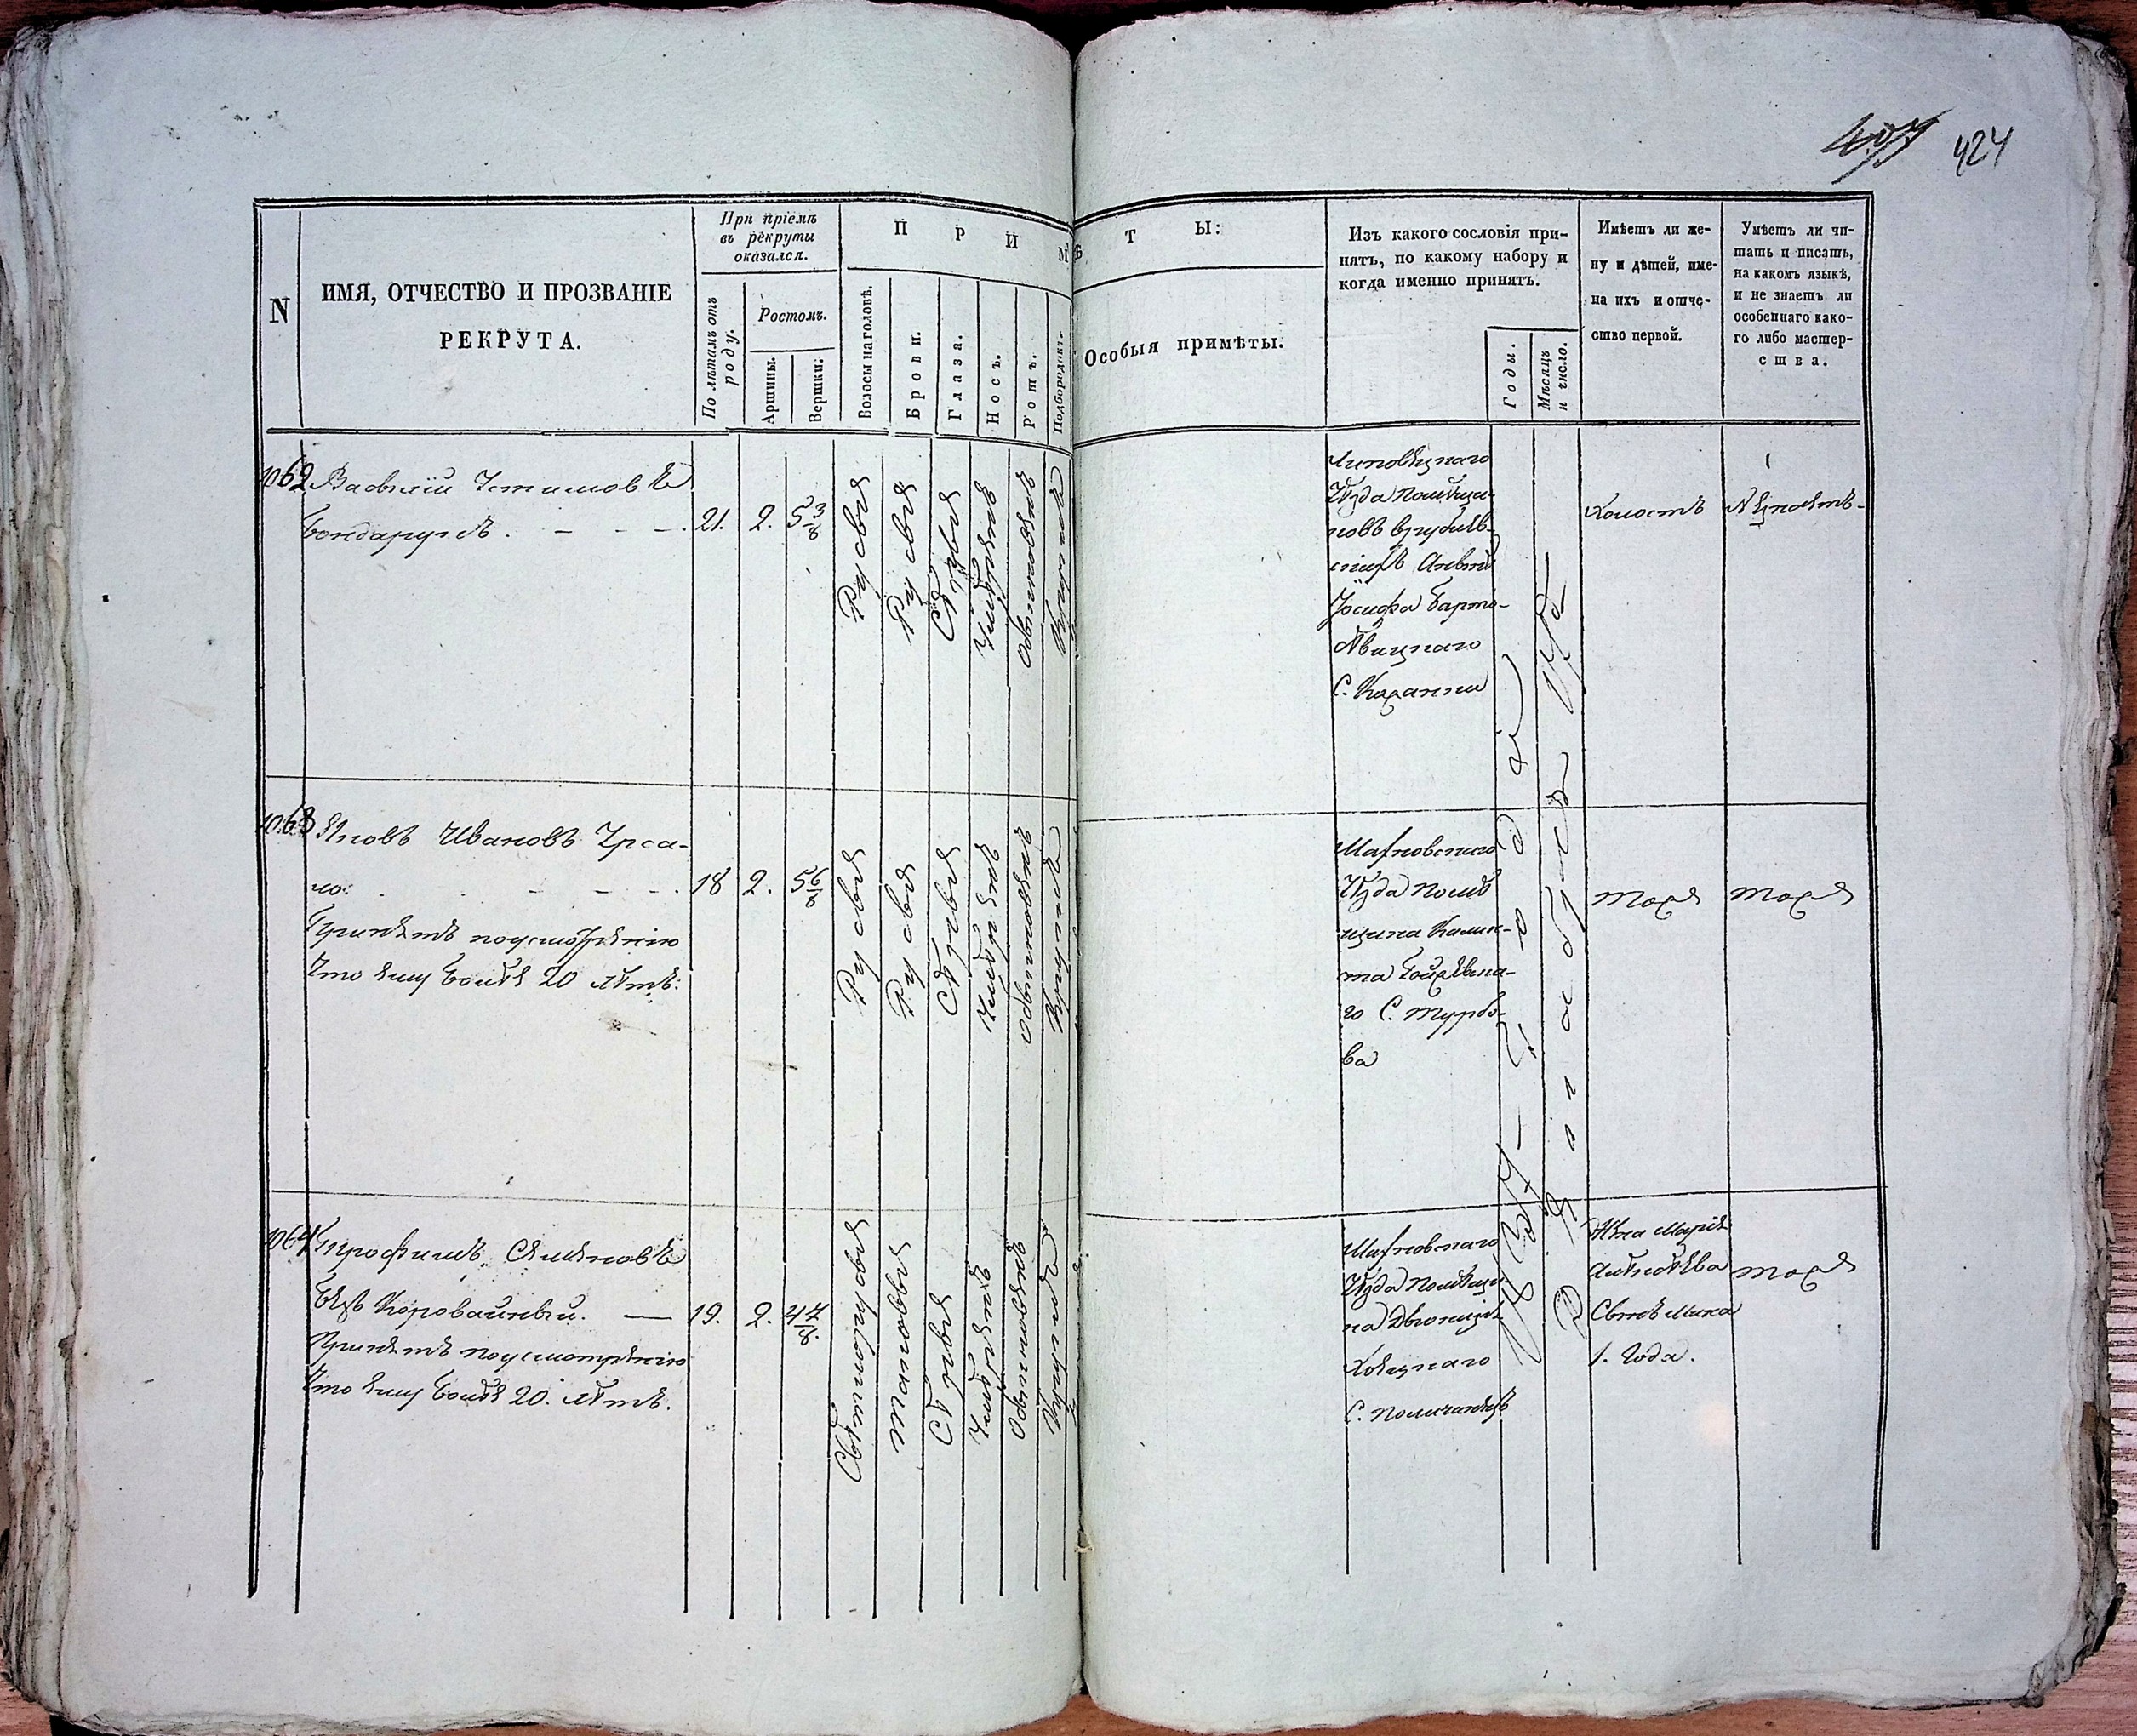 424
N
ИМЯ, ОТЧЕСТВО И ПРОЗВАНІЕ
РЕКРУТА.
При пріемѣ
въ рекруты
оказался.
По лѣтамъ отъ
роду.
Ростомъ.
Аршины.
Вершки.
П Р И М Ѣ Т Ы:
Волосы на головѣ.
Брови.
Глаза.
Носъ.
Ротъ.
Подбородокъ.
Особыя примѣты.
Изъ какого сословія при-
нятъ, по какому набору и
когда именно принятъ.
Годы.
Мѣсяцъ
и число.
Имѣетъ ли же-
ну и дѣтей, име-
на ихъ и отче-
ство первой.
Умѣетъ ли чи-
тать и писать,
на какомъ языкѣ,
и не знаетъ ли
особеннаго како-
го либо мастер-
ства.
1062
Василій Устимовъ
Бондарукъ.
21.
2.
5 3/8
Русыя
Русыя
Сѣрыя
Умѣренъ
Обыкновенъ
Круглый
Липовецкаго
Уѣзда Помѣщи-
ковъ
Іосифа
С. Казанки
Холостъ
Незнаетъ
1063
Яковъ Ивановъ Урса-
ло.
18
2.
5 6/8
Принятъ поусмотрѣнію
Что ему болѣе 20 лѣтъ.
Русыя
Русыя
Сѣрыя
Умѣренъ
Обыкновенъ
Круглый
Махновскаго
Уѣзда Помѣ
щика Каликс-
та
го С. Турбо-
ва
Тоже
Тоже
1064
Трофимъ Семеновъ
Коровайный.
19.
2.
4 4/8
Принятъ поусмотрѣнію
Что ему болѣе 20. лѣтъ.
Свѣтлорусыя
Таковыя
Сѣрыя
Умѣренъ
Обыкновенъ
Круглый
Махновскаго
Уѣзда Помѣщи-
ка
С.
Жена Марія
Сынъ Лука
1. Года.
Тоже
года
Декабря